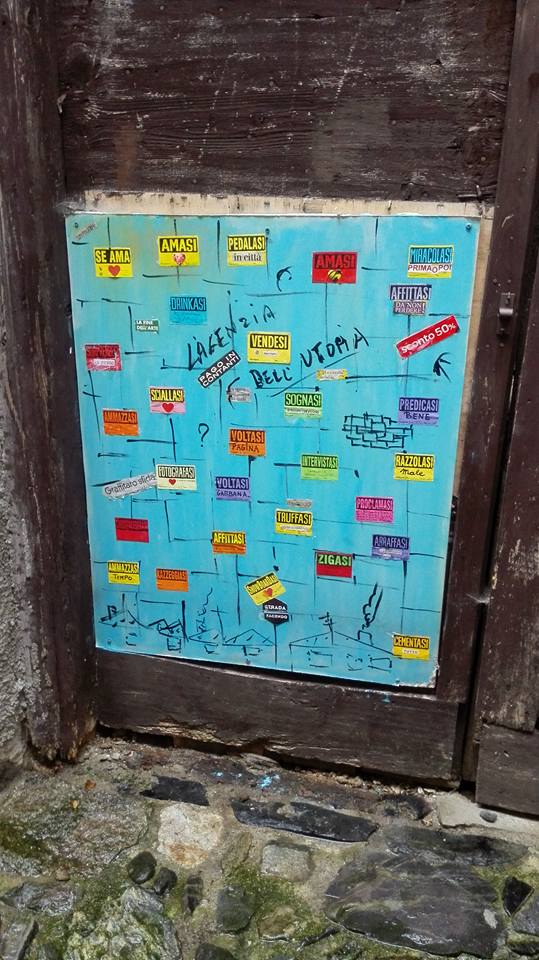 SE AMA
AMASI
PEDALASI
in città
AMASI
MIRACOLASI
PRIMA O POI
DRINKASI
AFFITTASI
DA NON
PERDERE!
LA FINE
DELL'ARTE
L'AGENZIA
DELL'UTOPIA
VENDESI
sconto 50%
PAGO IN
CONTANTI
SCIALLASI
SOGNASI
PREDICASI
BENE
AMMAZZASI
?
VOLTASI
PAGINA
INTERVISTASI
RAZZOLASI
male
FOTOGRAFASI
Graffitato sfitto
VOLTASI
GABBANA
PROCLAMASI
TRUFFASI
AFFITTASI
ARRAFFASI
ZIGASI
AMMAZZASI
TEMPO
CAZZEGGIASI
STRADA
FACENDO
CEMENTASI